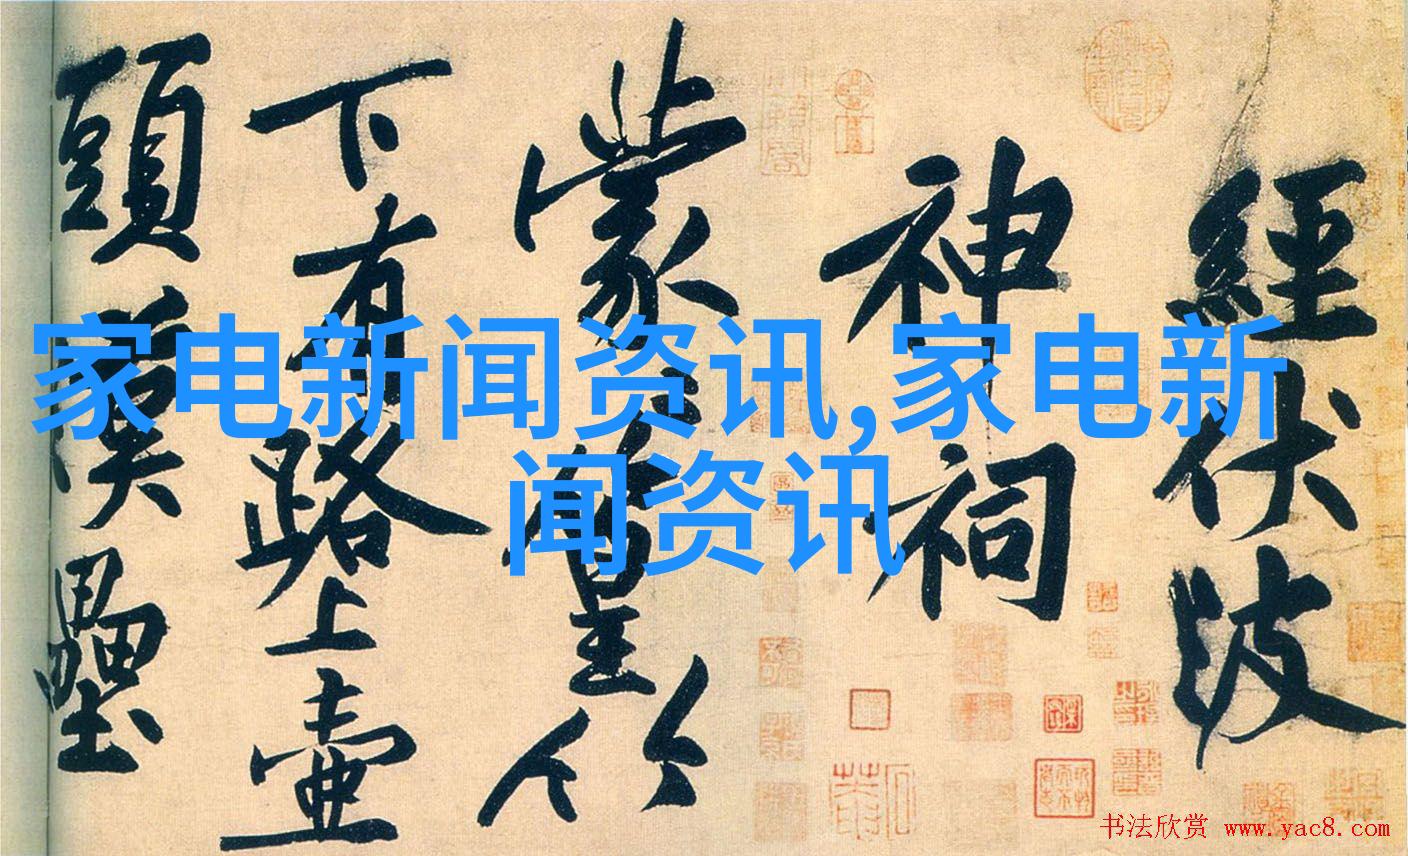 經伏波
神祠
蒙〻篁竹
下有路上壺
頭漢壘
家电新闻资讯,家电新
闻资讯
书法欣赏 www.yac8.com